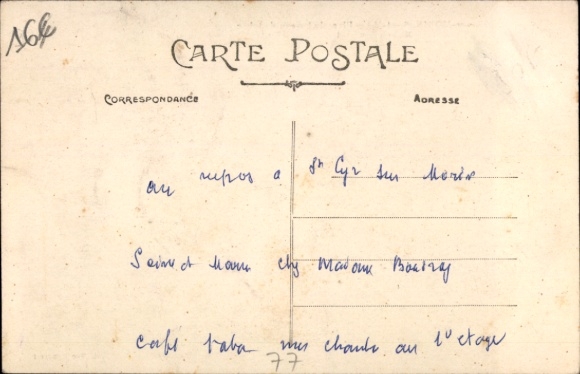 16€
CARTE POSTALE
CORRESPONDANCE
ADRESSE
au repos a St Cyr sur Morin
Seine et Marne chez Madame
café tabac une chambre au 1er etage
77